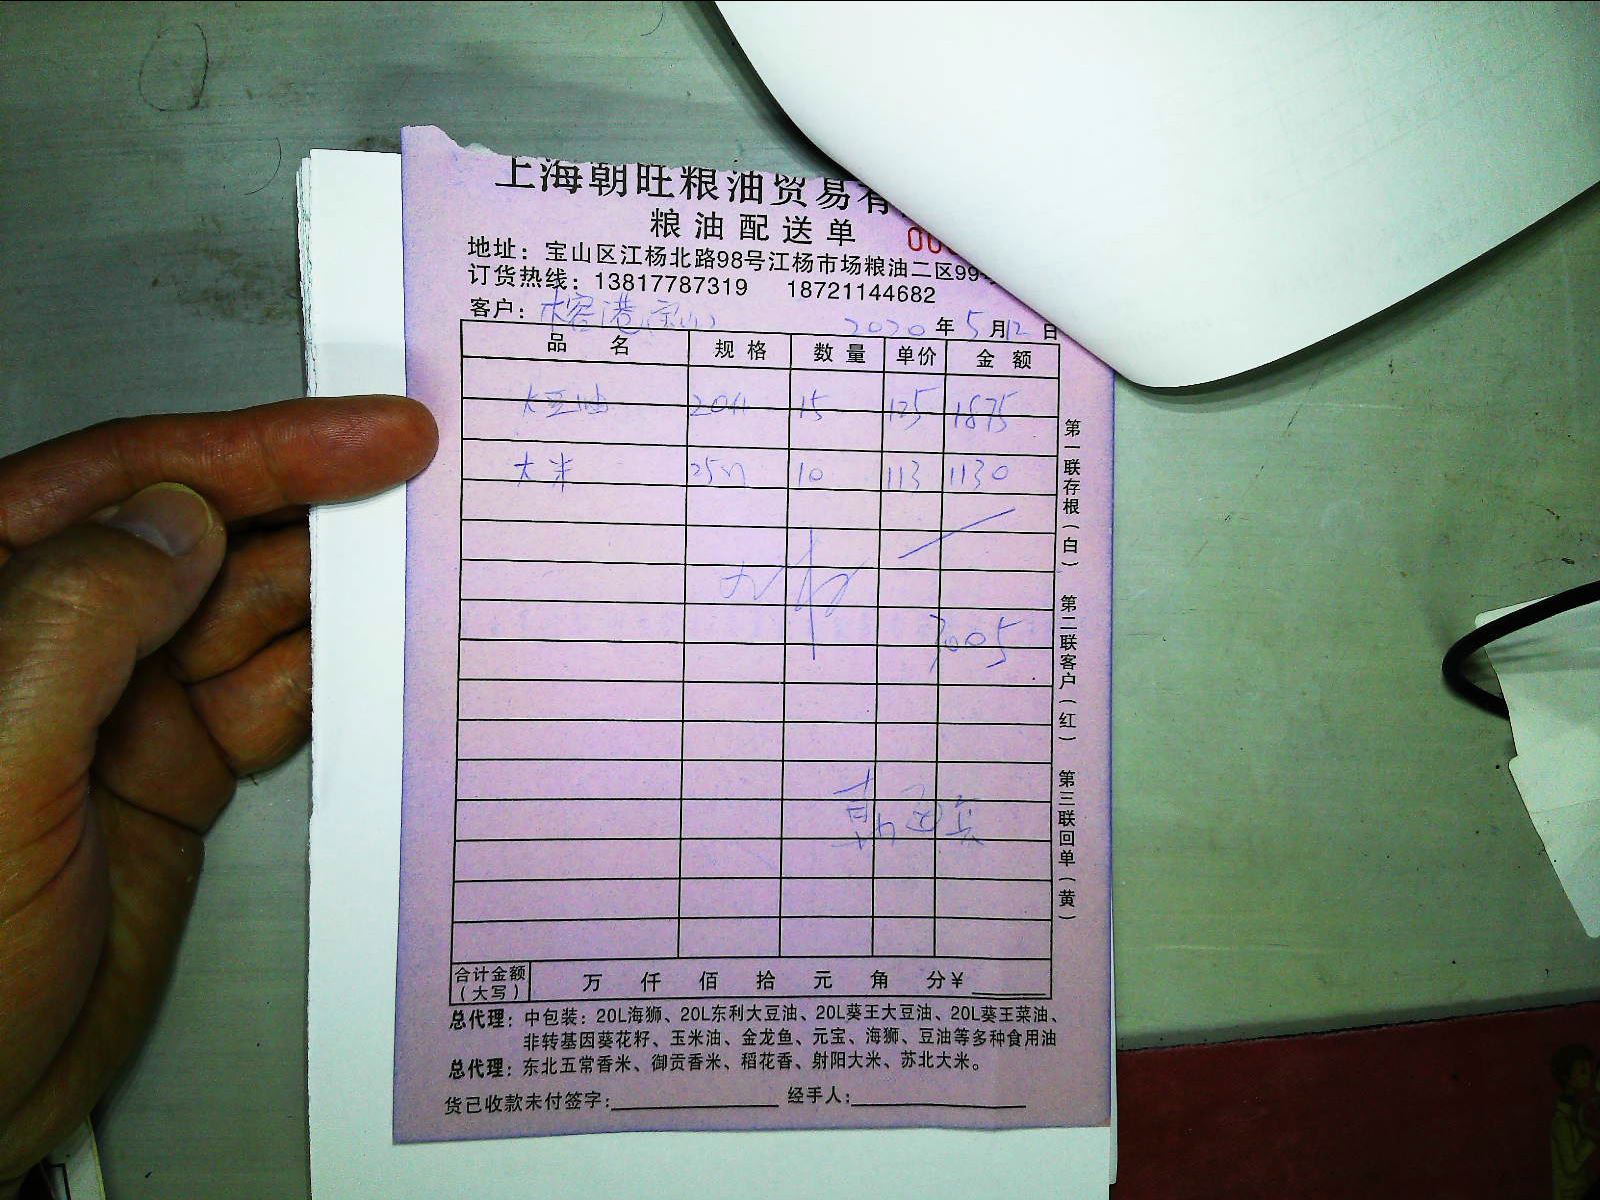 上海朝旺粮油贸易有
粮油配送单 00
地址：宝山区江杨北路98号江杨市场粮油二区99
订货热线：13817787319 18721144682
客户：榕港宝山 2020年5月12日
品名 规格 数量 单价 金额
大豆油 20 15 125 1875
大米 25 10 113 1130
3005
第一联存根（白） 第二联客户（红） 第三联回单（黄）
合计金额（大写） 万 仟 佰 拾 元 角 分¥
总代理：中包装：20L海狮、20L东利大豆油、20L葵王大豆油、20L葵王菜油、
非转基因葵花籽、玉米油、金龙鱼、元宝、海狮、豆油等多种食用油
总代理：东北五常香米、御贡香米、稻花香、射阳大米、苏北大米。
货已收款未付签字： 经手人：